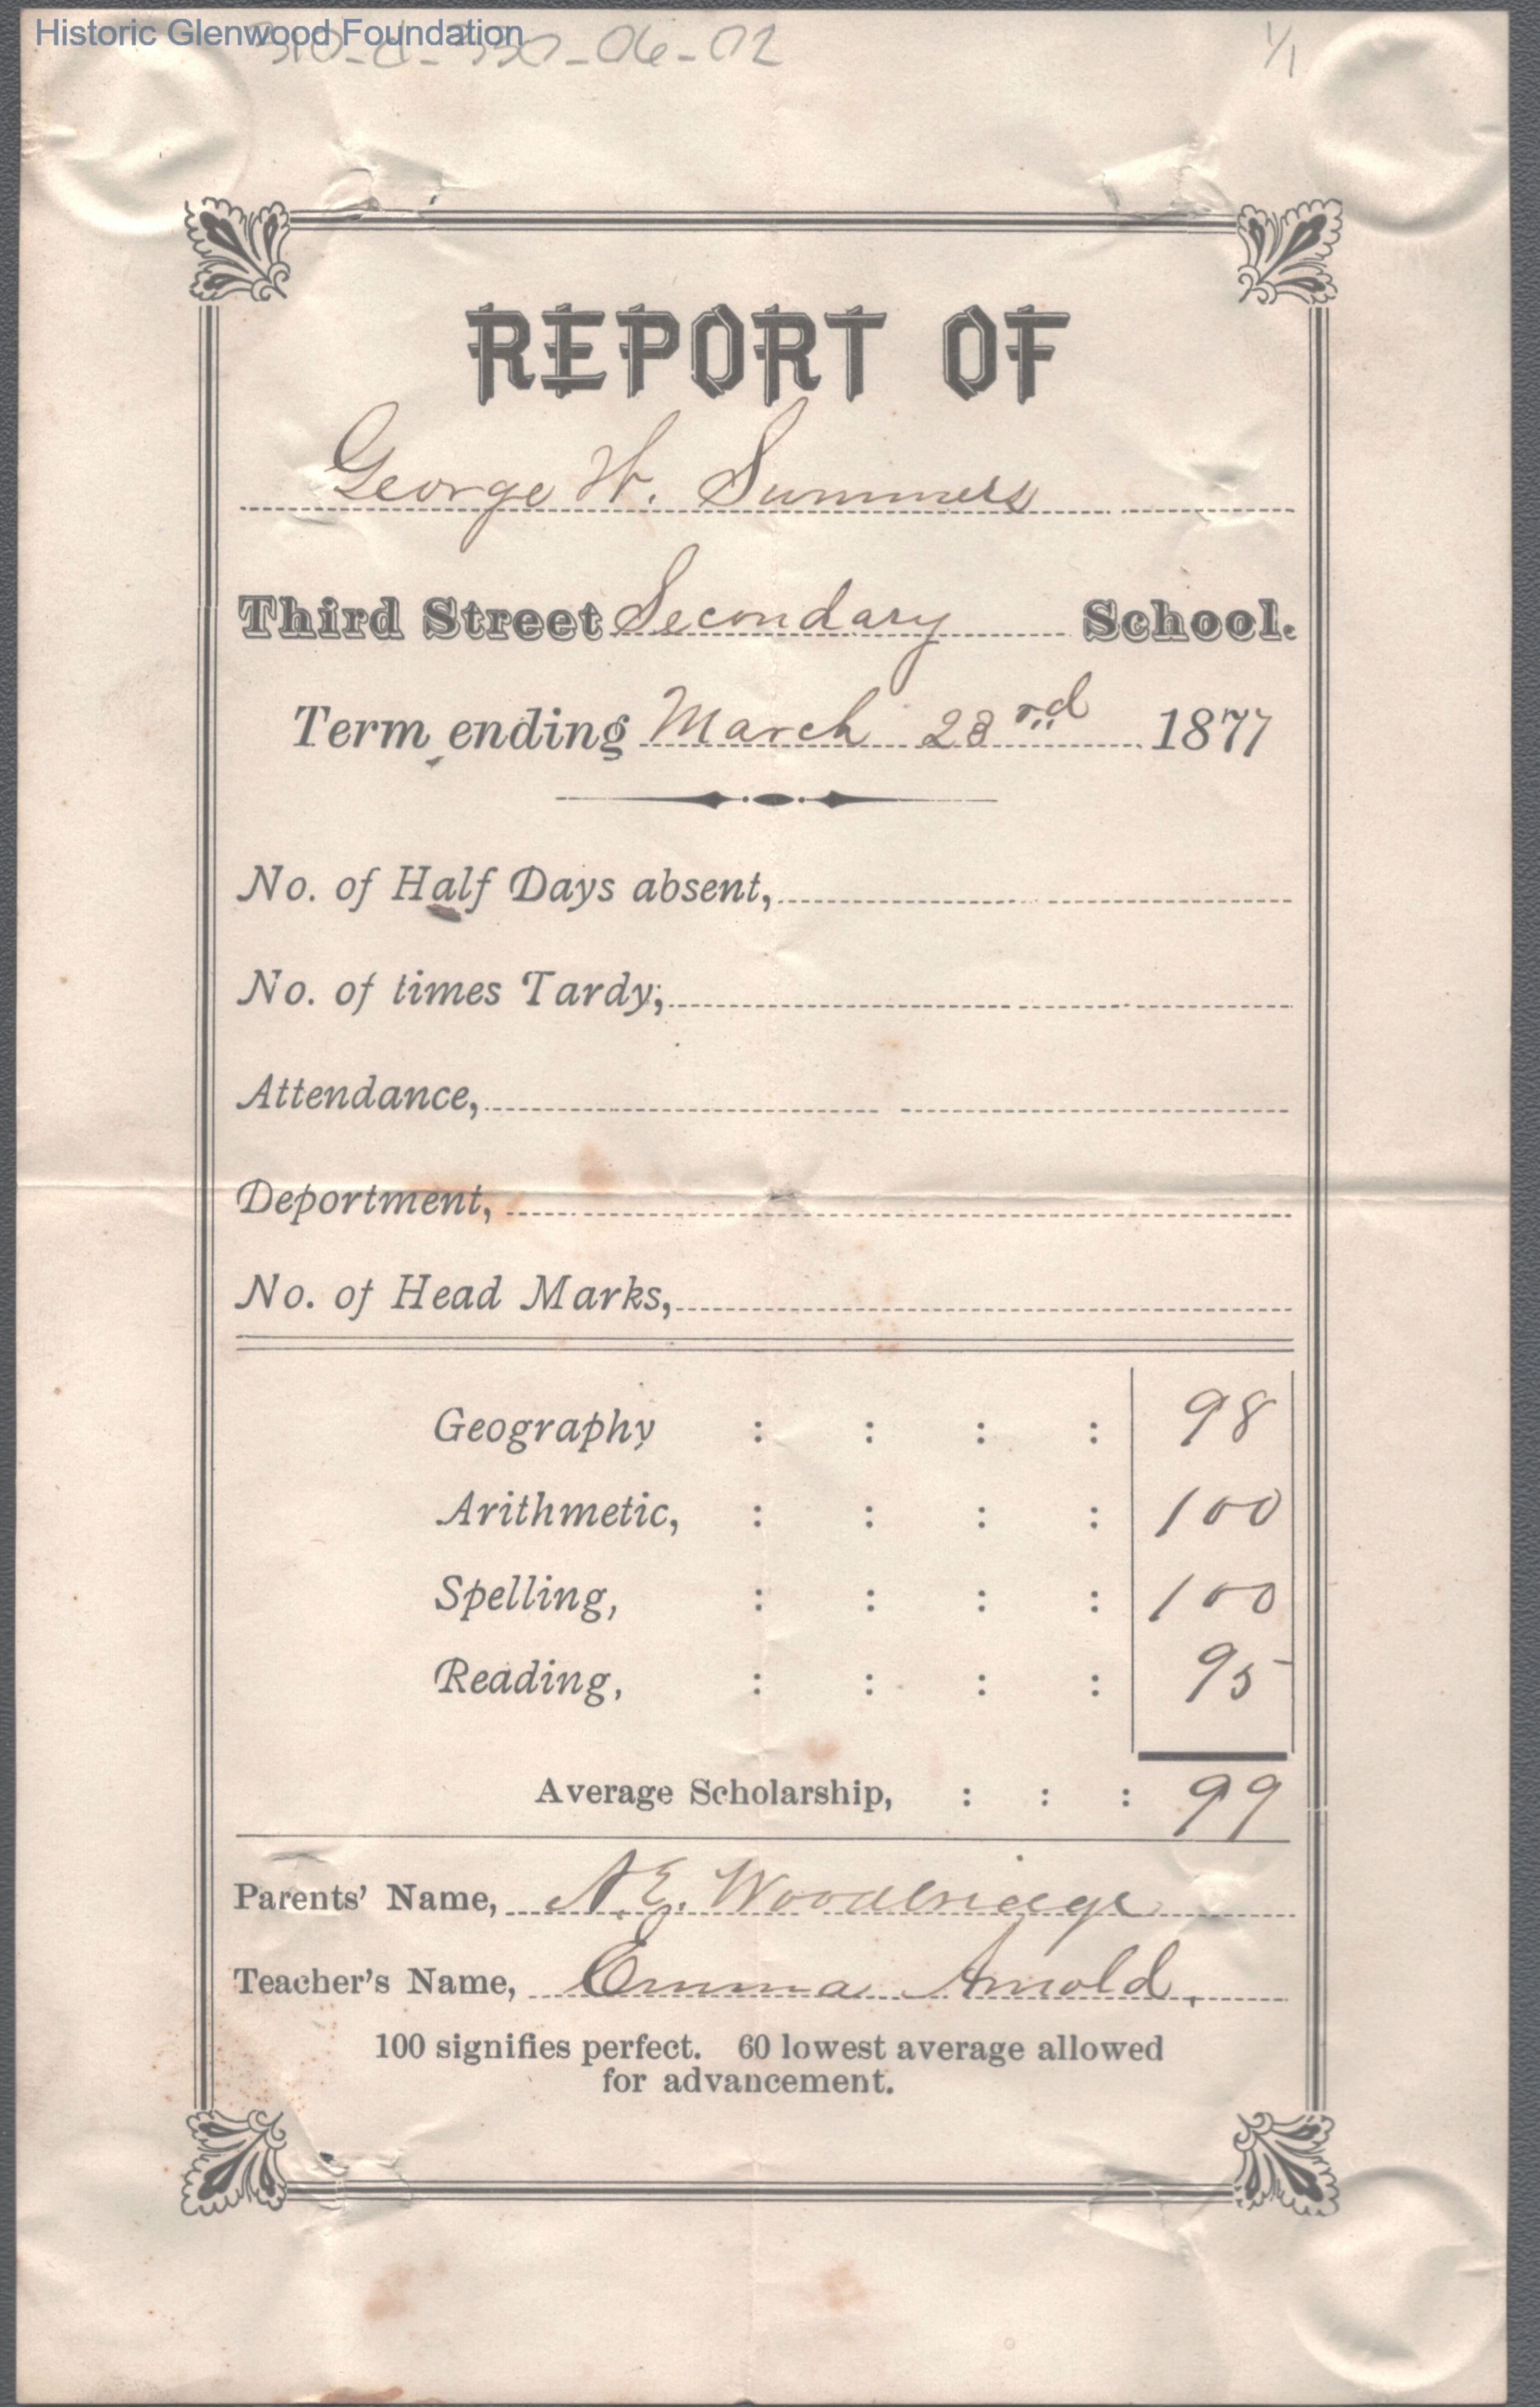 Historic Glenwood Foundation
1/1
REPORT OF
George W. Summers
Third Street Secondary School.
Term ending March 23rd 1877
No. of Half Days absent,
No. of times Tardy,
Attendance,
Deportment,
No. of Head Marks,
Geography : : : : 98
Arithmetic, : : : : 100
Spelling, : : : : 100
Reading, : : : : 95
Average Scholarship, : : : 99
Parents' Name, A.E. Woodbridge
Teacher's Name, Emma Arnold.
100 signifies perfect. 60 lowest average allowed
for advancement.